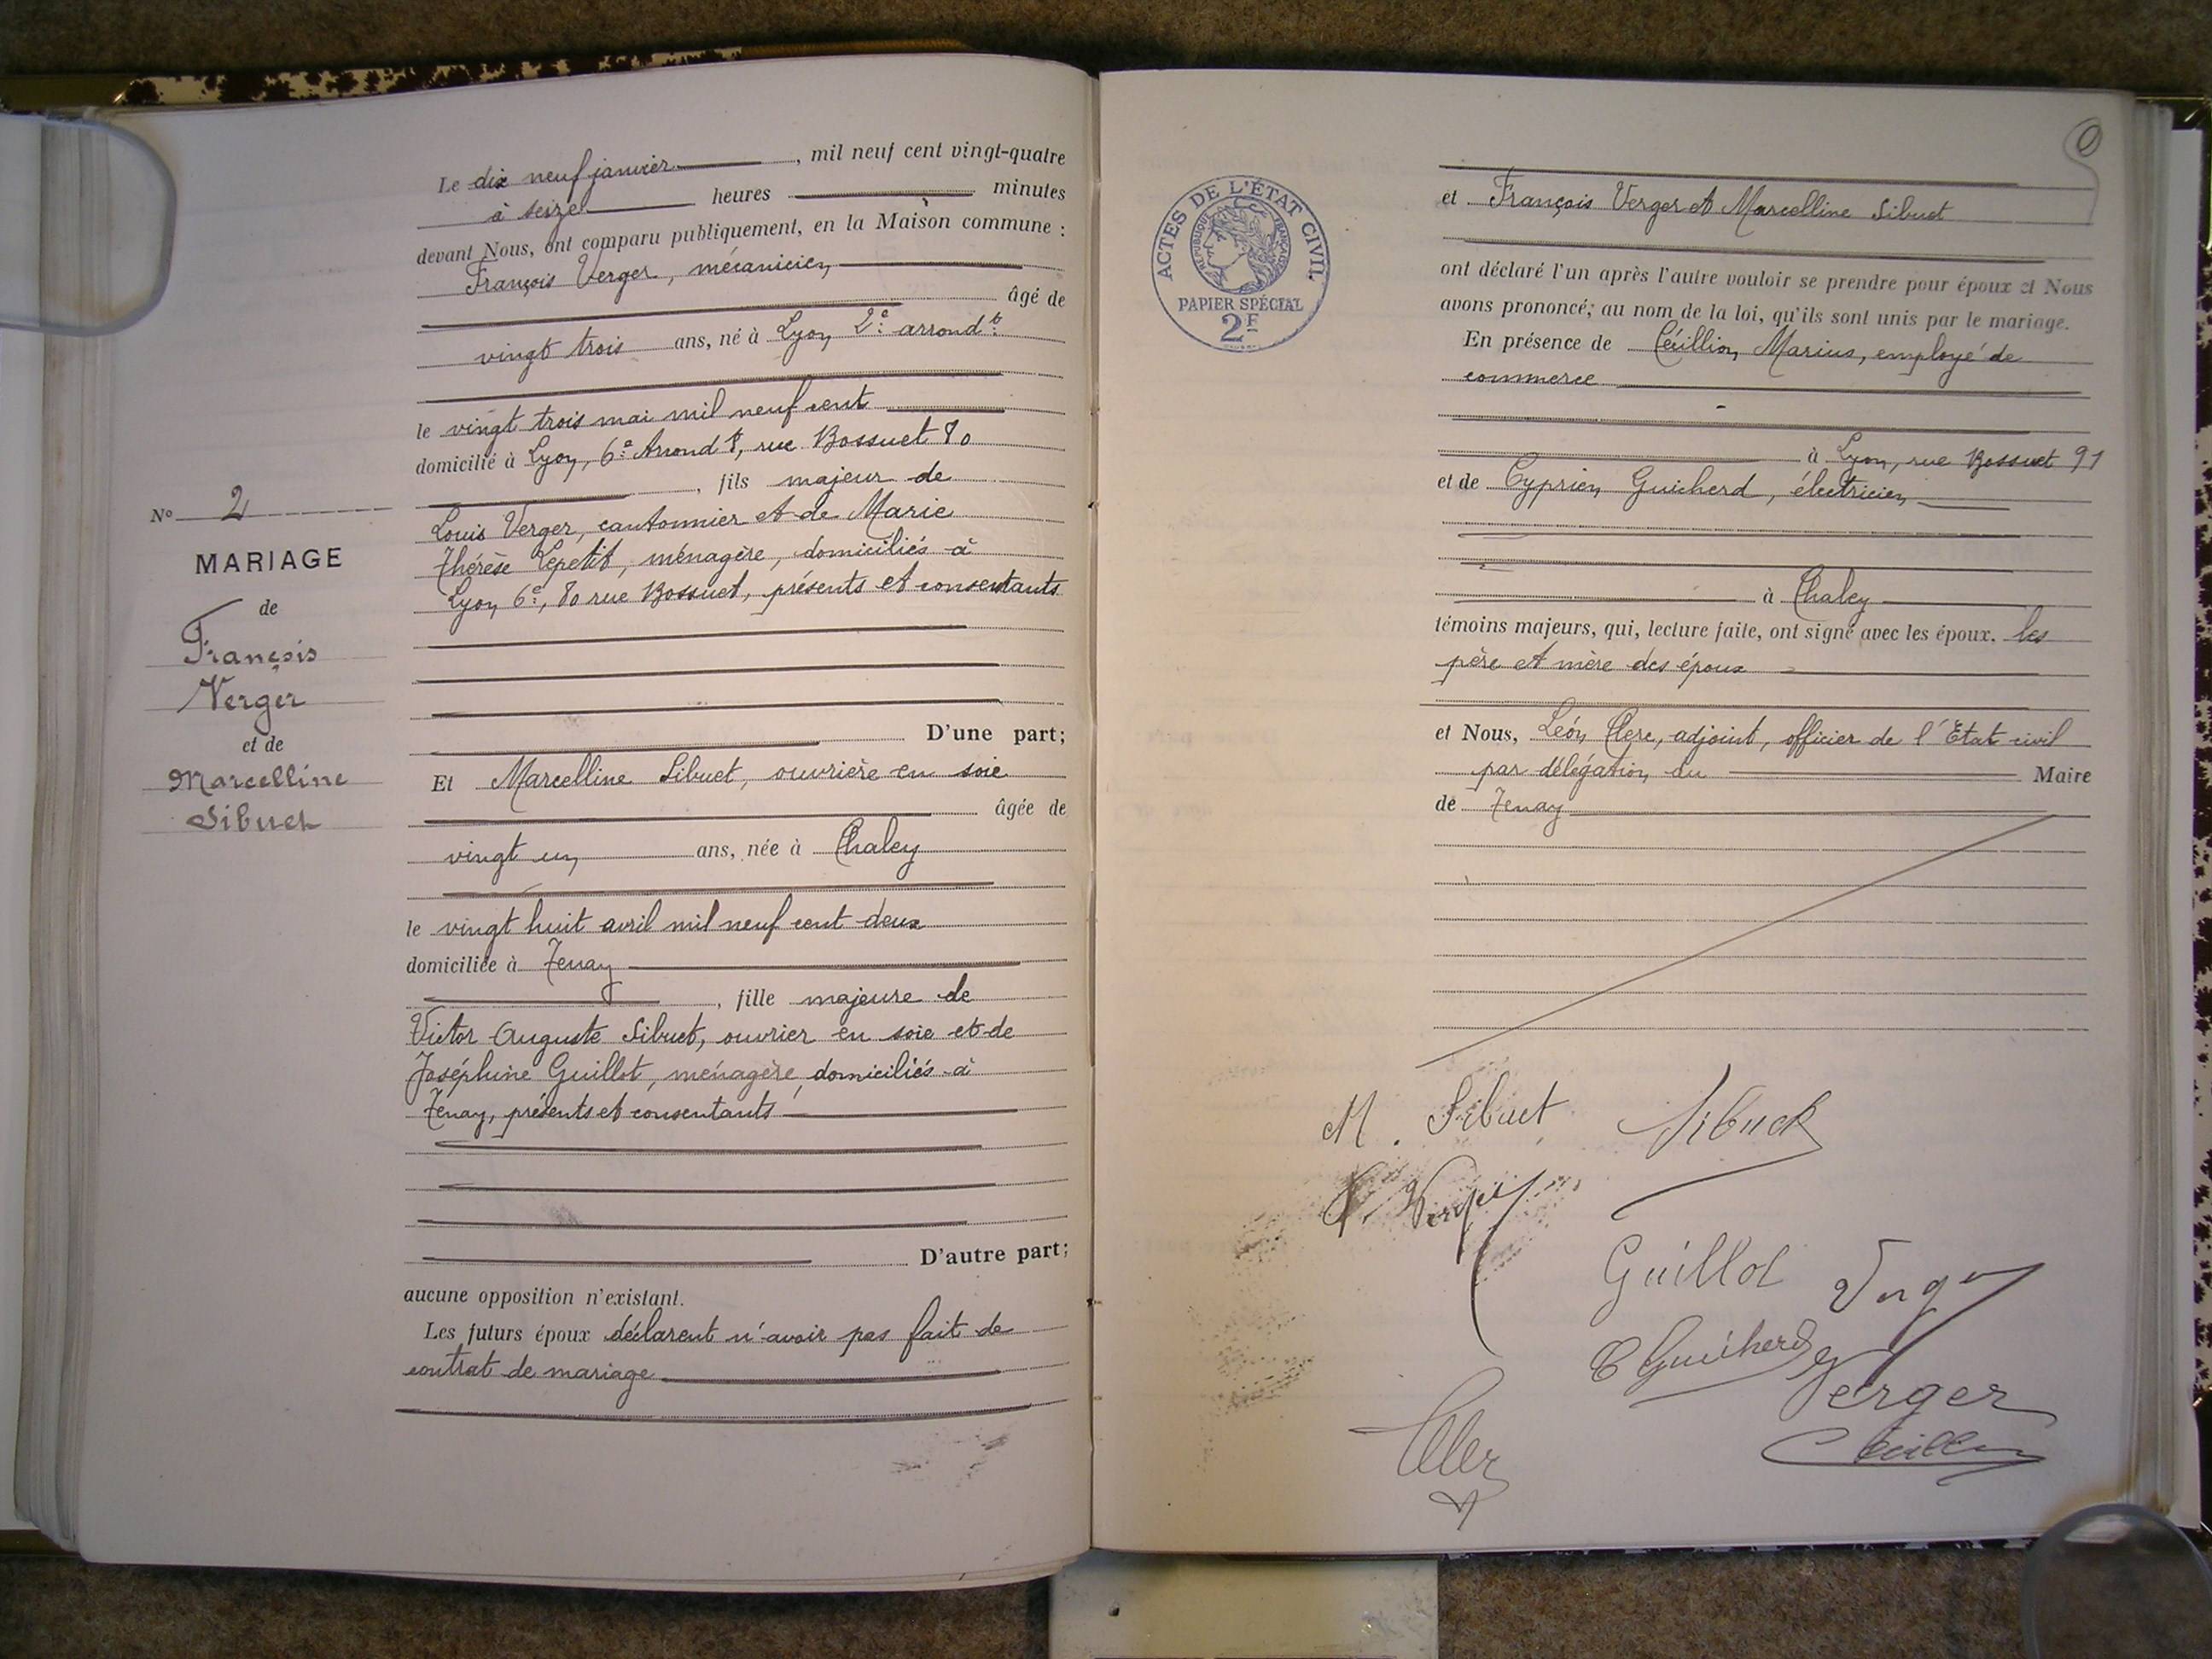 Le dix neuf janvier, mil neuf cent vingt-quatre
à seize heures minutes
devant Nous, ont comparu publiquement, en la Maison commune :
François Verger, mécanicien
âgé de
vingt trois ans, né à Lyon 2e. arrondt.
le vingt trois mai mil neuf cent
domicilié à Lyon, 6e. Arrondt, rue Bossuet 80
, fils majeur de
Louis Verger, cantonnier et de Marie
Thérèse Lepetit, ménagère, domiciliés à
Lyon 6e., 80 rue Bossuet, présents et consentants
D'une part;
Et Marcelline Sibuet, ouvrière en soie
âgée de
vingt un ans, née à Chaley
le vingt huit avril mil neuf cent deux
domiciliée à Tenay
, fille majeure de
Victor Auguste Sibuet, ouvrier en soie et de
Joséphine Guillot, ménagère, domiciliés à
Tenay, présents et consentants
D'autre part;
aucune opposition n'existant.
Les futurs époux déclarent n'avoir pas fait de
contrat de mariage
No 2
MARIAGE
de
François
Verger
et de
Marcelline
Sibuet
ACTES DE L'ÉTAT CIVIL
RÉPUBLIQUE FRANÇAISE
PAPIER SPÉCIAL
2F
et François Verger et Marcelline Sibuet
ont déclaré l'un après l'autre vouloir se prendre pour époux et Nous
avons prononcé; au nom de la loi, qu'ils sont unis par le mariage.
En présence de Marius, employé de
commerce
à Lyon, rue Bossuet 91
et de Cyprien Guicherd, électricien
à Chaley
témoins majeurs, qui, lecture faite, ont signé avec les époux. les
père et mère des époux
et Nous, Léon Clerc, adjoint, officier de l'Etat civil
par délégation du Maire
de Tenay
M. Sibuet Sibuet
F. Verger
Guillot Verger
C Guicherd
Verger